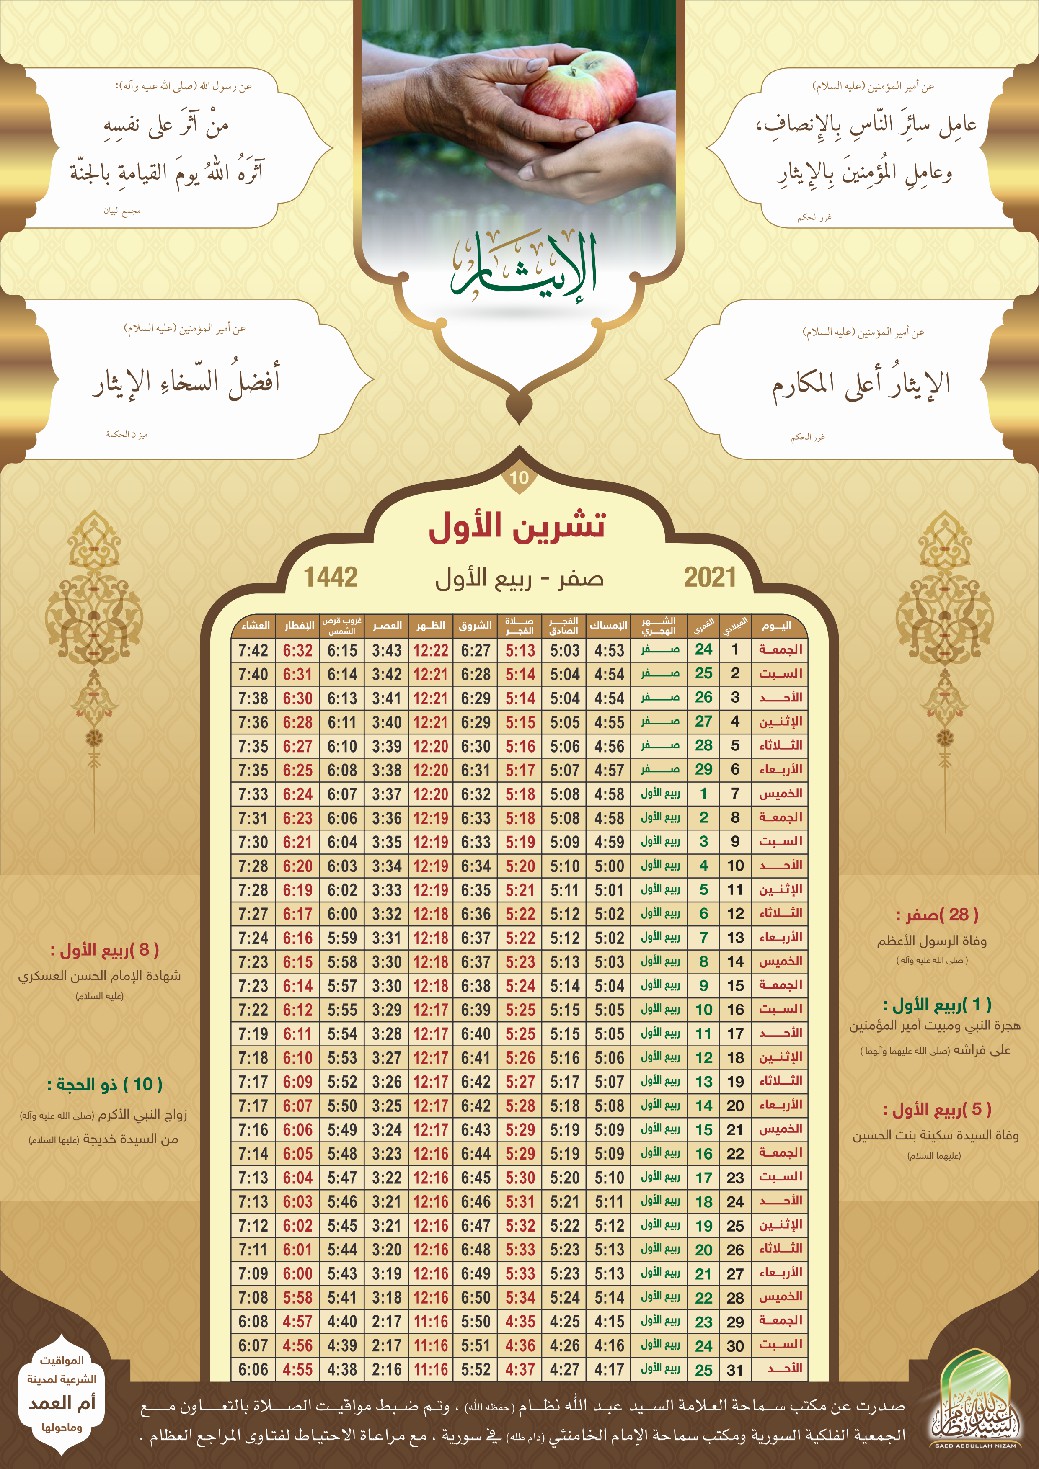 عن أمير المؤمنين (عليه السلام)
عامِل سائرَ النّاسِ بِالإنصافِ،
وعامِلِ المُؤمِنينَ بِالإيثارِ
غرر الحكم
عن رسول الله (صلى الله عليه وآله):
منْ آثَرَ على نفسِهِ
آثَرَهُ اللهُ يومَ القيامةِ بالجنّة
مجمع البيان
الإيثار
عن أمير المؤمنين (عليه السلام)
الإيثارُ أعلى المكارم
غرر الحكم
عن أمير المؤمنين (عليه السلام)
أفضلُ السّخاءِ الإيثار
ميزان الحكمة
10
تشرين الأول
2021 صفر - ربيع الأول 1442
اليوم الميلادي القمري الشهر الهجري الإمساك الفجر الصادق صلاة الفجر الشروق الظهر العصر غروب قرص الشمس الإفطار العشاء
الجمعة 1 24 صفر 4:53 5:03 5:13 6:27 12:22 3:43 6:15 6:32 7:42
السبت 2 25 صفر 4:54 5:04 5:14 6:28 12:21 3:42 6:14 6:31 7:40
الأحد 3 26 صفر 4:54 5:04 5:14 6:29 12:21 3:41 6:13 6:30 7:38
الإثنين 4 27 صفر 4:55 5:05 5:15 6:29 12:21 3:40 6:11 6:28 7:36
الثلاثاء 5 28 صفر 4:56 5:06 5:16 6:30 12:20 3:39 6:10 6:27 7:35
الأربعاء 6 29 صفر 4:57 5:07 5:17 6:31 12:20 3:38 6:08 6:25 7:35
الخميس 7 1 ربيع الأول 4:58 5:08 5:18 6:32 12:20 3:37 6:07 6:24 7:33
الجمعة 8 2 ربيع الأول 4:58 5:08 5:18 6:33 12:19 3:36 6:06 6:23 7:31
السبت 9 3 ربيع الأول 4:59 5:09 5:19 6:33 12:19 3:35 6:04 6:21 7:30
الأحد 10 4 ربيع الأول 5:00 5:10 5:20 6:34 12:19 3:34 6:03 6:20 7:28
الإثنين 11 5 ربيع الأول 5:01 5:11 5:21 6:35 12:19 3:33 6:02 6:19 7:28
الثلاثاء 12 6 ربيع الأول 5:02 5:12 5:22 6:36 12:18 3:32 6:00 6:17 7:27
الأربعاء 13 7 ربيع الأول 5:02 5:12 5:22 6:37 12:18 3:31 5:59 6:16 7:24
الخميس 14 8 ربيع الأول 5:03 5:13 5:23 6:37 12:18 3:30 5:58 6:15 7:23
الجمعة 15 9 ربيع الأول 5:04 5:14 5:24 6:38 12:18 3:30 5:57 6:14 7:23
السبت 16 10 ربيع الأول 5:05 5:15 5:25 6:39 12:17 3:29 5:55 6:12 7:22
الأحد 17 11 ربيع الأول 5:05 5:15 5:25 6:40 12:17 3:28 5:54 6:11 7:19
الإثنين 18 12 ربيع الأول 5:06 5:16 5:26 6:41 12:17 3:27 5:53 6:10 7:18
الثلاثاء 19 13 ربيع الأول 5:07 5:17 5:27 6:42 12:17 3:26 5:52 6:09 7:17
الأربعاء 20 14 ربيع الأول 5:08 5:18 5:28 6:42 12:17 3:25 5:50 6:07 7:17
الخميس 21 15 ربيع الأول 5:09 5:19 5:29 6:43 12:17 3:24 5:49 6:06 7:16
الجمعة 22 16 ربيع الأول 5:09 5:19 5:29 6:44 12:16 3:23 5:48 6:05 7:14
السبت 23 17 ربيع الأول 5:10 5:20 5:30 6:45 12:16 3:22 5:47 6:04 7:13
الأحد 24 18 ربيع الأول 5:11 5:21 5:31 6:46 12:16 3:21 5:46 6:03 7:13
الإثنين 25 19 ربيع الأول 5:12 5:22 5:32 6:47 12:16 3:21 5:45 6:02 7:12
الثلاثاء 26 20 ربيع الأول 5:13 5:23 5:33 6:48 12:16 3:20 5:44 6:01 7:11
الأربعاء 27 21 ربيع الأول 5:13 5:23 5:33 6:49 12:16 3:19 5:43 6:00 7:09
الخميس 28 22 ربيع الأول 5:14 5:24 5:34 6:50 12:16 3:18 5:41 5:58 7:08
الجمعة 29 23 ربيع الأول 4:15 4:25 4:35 5:50 11:16 2:17 4:40 4:57 6:08
السبت 30 24 ربيع الأول 4:16 4:26 4:36 5:51 11:16 2:17 4:39 4:56 6:07
الأحد 31 25 ربيع الأول 4:17 4:27 4:37 5:52 11:16 2:16 4:38 4:55 6:06
( 28 )صفر :
وفاة الرسول الأعظم
( صلى الله عليه وآله )
( 1 )ربيع الأول :
هجرة النبي ومبيت أمير المؤمنين
على فراشه (صلى الله عليهما وآلهما )
( 5 )ربيع الأول :
وفاة السيدة سكينة بنت الحسين
(عليهما السلام)
( 8 )ربيع الأول :
شهادة الإمام الحسن العسكري
(عليه السلام)
( 10 ) ذو الحجة :
زواج النبي الأكرم (صلى الله عليه وآله)
من السيدة خديجة (عليها السلام)
المواقيت
الشرعية لمدينة
أم العمد
وماحولها
صدرت عن مكتب سماحة العلامة السيد عبد الله نظام (حفظه الله) ، وتم ضبط مواقيت الصلاة بالتعاون مع
الجمعية الفلكية السورية ومكتب سماحة الإمام الخامنئي (دام ظله) في سورية ، مع مراعاة الاحتياط لفتاوى المراجع العظام .
السيد عبد الله نظام
SAED ABDULLAH NIZAM